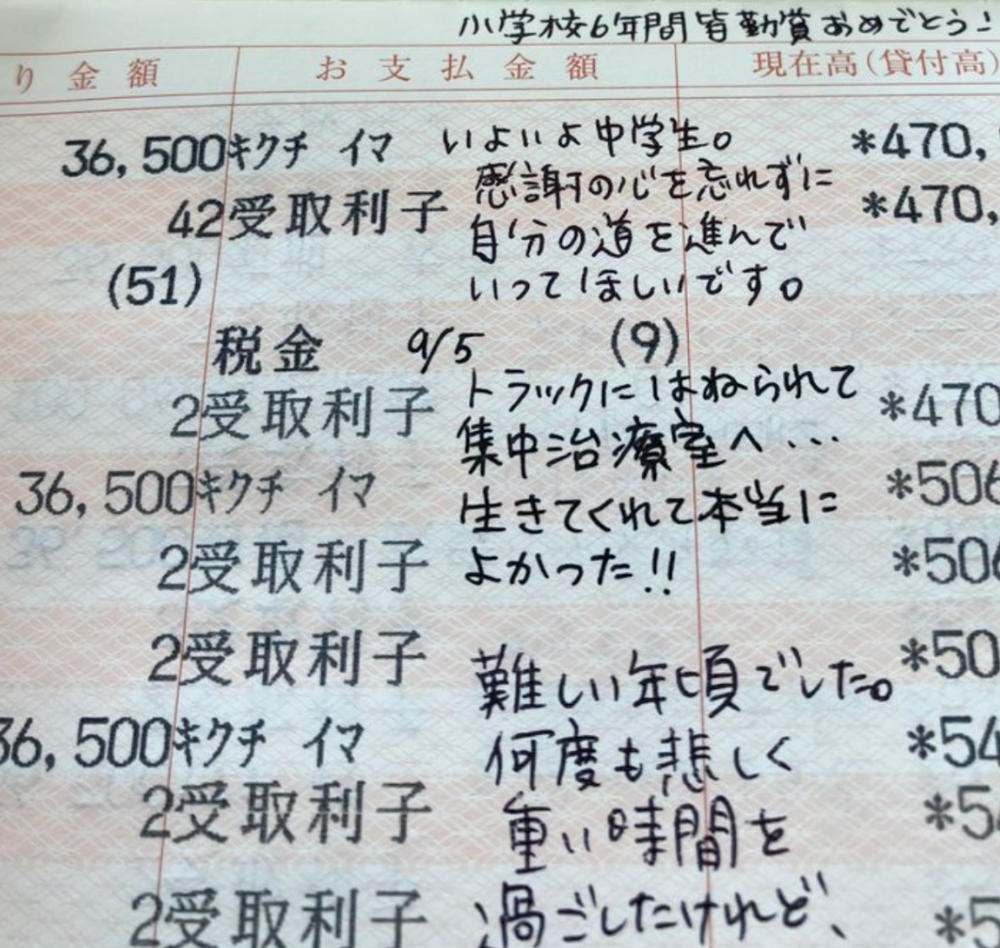 小学校6年間皆勤賞おめでとう!
り金額 お支払金額 現在高(貸付高)
36,500キクチ イマ いよいよ中学生。 *470,
感謝の心を忘れずに
42受取利子 *470,
自分の道を進んで
(51) いってほしいです。
税金 9/5 (9)
トラックにはねられて
2受取利子 *470
集中治療室へ...
36,500キクチ イマ *506
生きてくれて本当に
2受取利子 よかった!! *506
2受取利子 *50
難しい年頃でした。
36,500キクチ イマ 何度も悲しく *54
2受取利子 重い時間を *5
2受取利子 過ごしたけれど、 *5